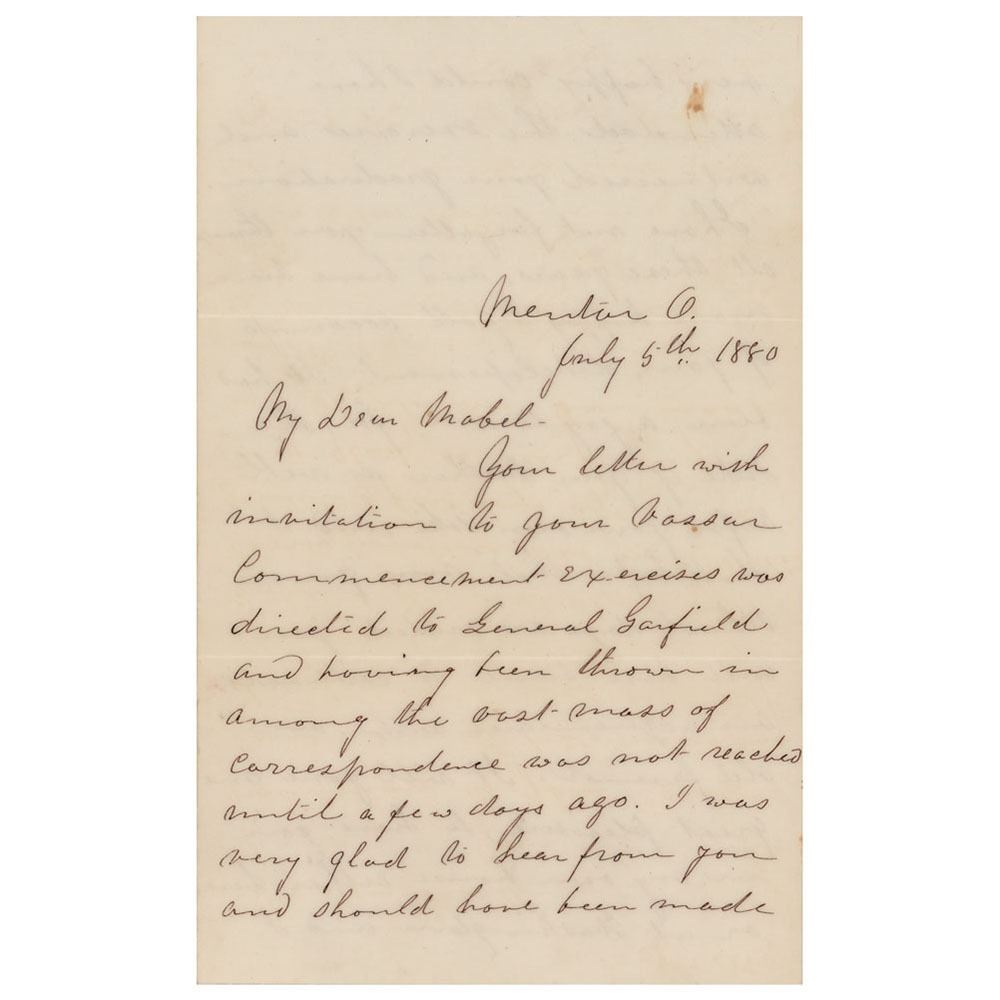 Mentor O.
July 5th 1880
My Dear Mabel-
Your letter with
invitation to your Vassar
Commencement Exercises was
directed to General Garfield
and having been thrown in
among the vast mass of
correspondence was not reached
until a few days ago. I was
very glad to hear from you
and should have been made